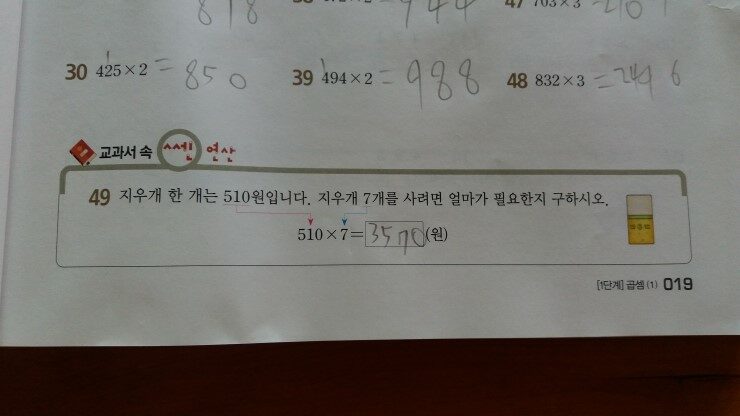 818 944 47 703×3 =210
30 425×2 = 850 39 494×2 = 988 48 832×3 = 2496
교과서 속 쎈 연산
49 지우개 한 개는 510원입니다. 지우개 7개를 사려면 얼마가 필요한지 구하시오.
510×7=3570(원)
[1단계] 곱셈 (1) 019